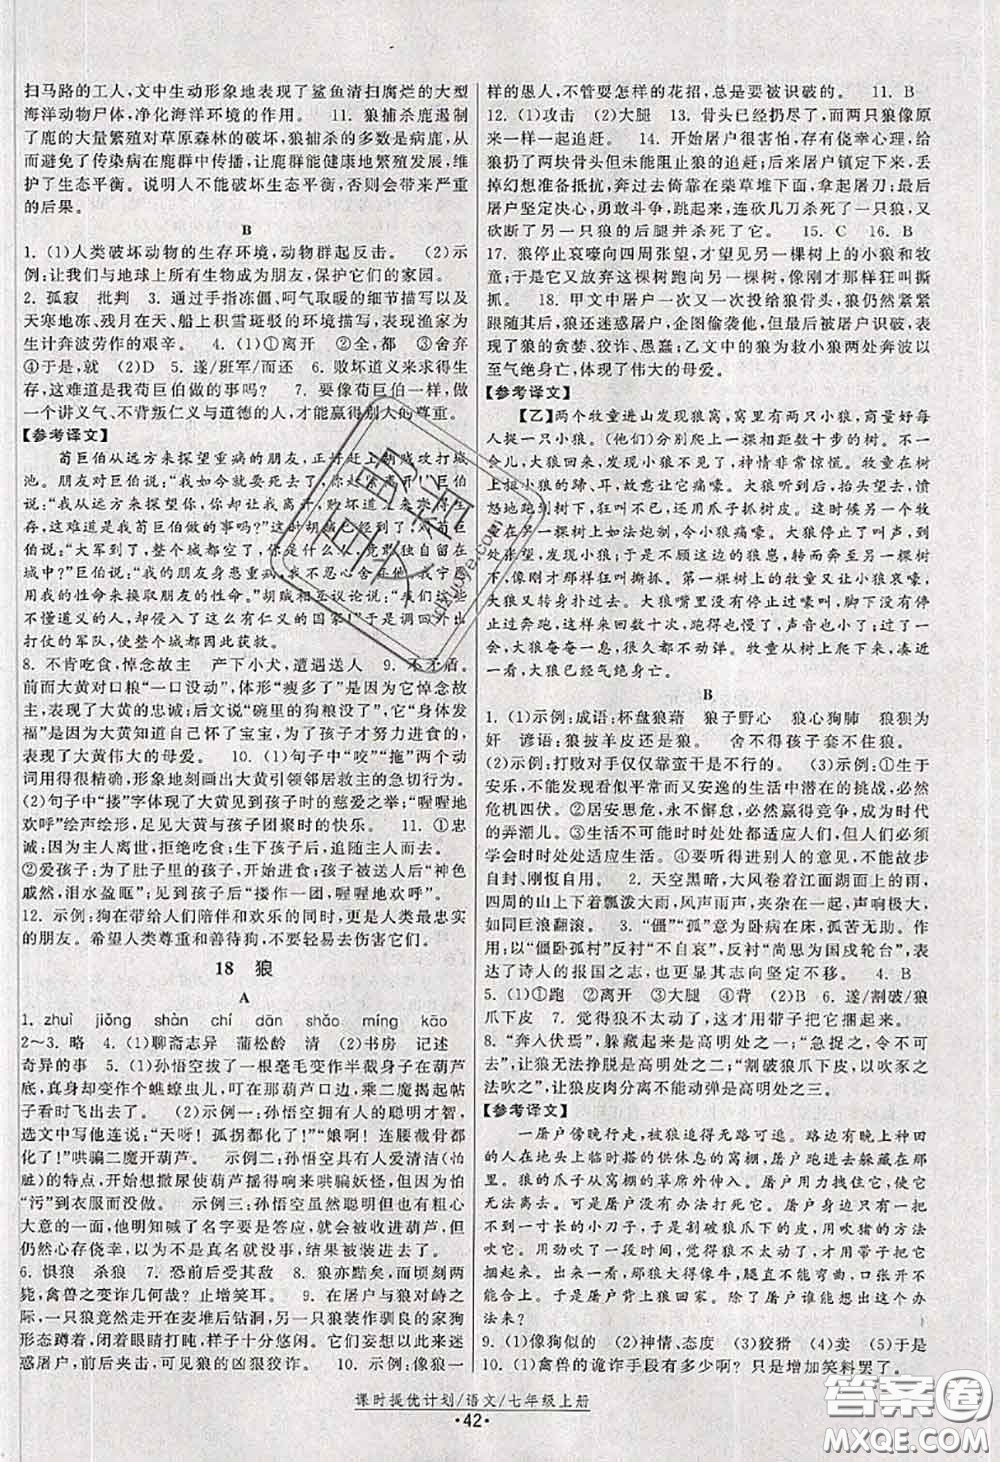 扫马路的工人,文中生动形象地表现了鲨鱼清扫腐烂的大型
海洋动物尸体,净化海洋环境的作用。 11. 狼捕杀鹿遏制
了鹿的大量繁殖对草原森林的破坏,狼捕杀的多数是病鹿,
从而避免了传染病在鹿群中传播,让鹿群能健康地繁殖发展,
维护了生态平衡。说明人不能破坏生态平衡,否则会带来严重
的后果。
B
1. (1)人类破坏动物的生存环境,动物群起反击。 (2)示
例:让我们与地球上所有生物成为朋友,保护它们的家园。
2. 孤寂 批判 3. 通过手指冻僵、呵气取暖的细节描写以及
天寒地冻、残月在天、船上积雪斑驳的环境描写,表现渔家为
生计奔波劳作的艰辛。 4. (1)①离开 ②全,都 ③舍弃
④于是,就 (2)D 5. 遂/班军/而还 6. 败坏道义来求得生
存,这难道是我荀巨伯做的事吗? 7. 要像荀巨伯一样,做
一个讲义气、不背叛仁义与道德的人,才能赢得别人的尊重。
【参考译文】
荀巨伯从远方来探望重病的朋友,正好赶上胡贼攻打城
池。朋友对巨伯说:“我今天就要死了,你赶快离开!”巨伯
说:“我从远方来探望你,你却要我离开;败坏道义来求得生
存,这难道是荀巨伯做的事吗?”这时胡贼已到,对荀巨伯
说:“大军到了,整个城都空了,你是什么人,竟敢独自留在
城中?”巨伯说:“我的朋友身患重病,我不忍心丢下他,宁愿
用我的性命来换取朋友的性命。”胡贼相互议论说:“我们这些
不懂道义的人,却攻入了这么有仁义的国家!”于是撤回
打仗的军队,使整个城都因此获救。
8. 不肯吃食,悼念故主 产下小犬,遭遇送人 9. 不矛盾。
前面大黄对口粮“一口没动”,体形“瘦多了”是因为它悼念
故主,表现了大黄的忠诚;后文说“碗里的狗粮没了”,它“身体发
福”是因为大黄知道自己怀了宝宝,为了孩子才努力进食的,
表现了大黄伟大的母爱。 10. (1)句子中“咬”“拖”两个动
词用得传神,形象地刻画出大黄引领邻居救主的急切行为。
(2)句子中“搂”字体现了大黄见到孩子时的慈爱之举,“喔喔地
欢呼”绘声绘形,足见大黄与孩子团聚时的快乐。 11. ①忠
诚:因为主人离世,拒绝吃食;遇到主人有难,主动求救。
②爱孩子:为了肚子里的孩子,开始进食;孩子被送人后“神色
戚然,泪水盈眶”;见到孩子后“搂作一团,喔喔地欢呼”。
12. 示例:狗在带给人们陪伴和欢乐的同时,更是人类最忠实
的朋友。希望人类尊重和善待狗,不要轻易去伤害它们。
18 狼
A
1. zhuì jiǒng shàn chí dān shǎo míng kāo
2~3. 略 4. (1)聊斋志异 蒲松龄 清 (2)书房 记述
奇异的事 5. (1)孙悟空拔了一根毫毛变作半截身子在葫芦
底,真身却变作个蟭蟟虫儿,叮在那葫芦口边,乘二魔揭起帖子
看时飞了出去。 (2)示例一:孙悟空拥有人的聪明才智,
选文中写他连说:“天呀!孤拐都化了!”“娘啊!连腰截骨都化
了!”哄骗二魔开葫芦。 示例二:孙悟空具有人爱清洁(怕
脏)的特点,开始想撒尿使葫芦摇响哄骗妖怪,但又害怕
“污”到衣服而没做。 示例三:孙悟空虽然聪明但也有粗心
大意的一面,他明知喊了名字要是答应,就会被装进葫芦,但
仍然心存侥幸,以为报个假名就没事,结果仍被装进葫芦。
6. 惧狼 杀狼 7. 恐前后受其敌 8. 狼亦黠矣,而顷刻两
毙,禽兽之变诈几何哉?止增笑耳。 9. 在屠户与狼对峙之际,
一只狼竟然走开在麦堆后钻洞,另一只狼装作驯良的家狗
形态蹲着,闭着眼睛打盹,样子十分悠闲。它们妄想用此来迷
惑屠户,由此可见狼的凶狠狡诈。 10. 示例:像狼一
样的愚人,不管耍怎样的花招,总是要被识破的。 11. B
12. (1)攻击 (2)大腿 13. 骨头已经扔尽了,而两只狼像原
来一样一起追赶。 14. 开始屠户很害怕,存有侥幸心理,给
狼扔了两块骨头但未能阻止狼的追赶;后来屠户镇定下来,丢
掉幻想准备抵抗,奔过去倚靠在柴草堆下方,拿起屠刀;最后
屠户坚定决心,勇敢斗争,跳起来,连砍几刀杀死了一只狼,又
砍断了另一只狼的后腿并杀死了它。 15. C 16. B
17. 狼停止哀嚎向四周张望,才看见另一棵树上的小狼和牧
童,于是它又放弃这一棵树跑向另一棵树,像刚才那样狂叫撕
抓。 18. 甲文中屠户一次又一次投给狼骨头,狼仍然紧紧
跟随其后,狼还迷惑屠户,企图偷袭他,但最后被屠户识破,表
现了狼的贪婪、狡诈、愚蠢;乙文中的狼为救小狼两处奔波以
至气绝身亡,体现了伟大的母爱。
【参考译文】
【乙】两个牧童进山发现狼窝,窝里有两只小狼,商量好每
人捉一只小狼。(他们)分别爬上两棵相距数十步的树。不
一会儿,大狼回来了,进窝发现小狼不见了,神情非常惊慌。牧童在
树上扭小狼的蹄、耳,故意让它嚎。大狼听到后,抬起头望去,愤
怒地跑到树下,一边狂叫,一边还用爪子抓树皮。另一个牧童
又在另一棵树上如法炮制,令小狼急叫。大狼停止了叫声,向
到处张望,发现了小狼;于是不管这里跑到那里,到另一棵树
下,像刚才那样狂叫抓撕。第一棵树上的牧童又让小狼哀嚎,
大狼又转身扑过去。大狼嘴里没有停止过嚎叫,脚下也没有
停止过奔跑,这样来回数十次,跑得慢了,声音也小了;过了
一会儿,大狼奄奄一息,很久都不动弹。牧童从树上下来
一看,大狼已经气绝身亡。
B
1. (1)示例:成语:杯盘狼藉 狼子野心 狼心狗肺 狼狈为
奸 谚语:狼披羊皮还是狼。 舍不得孩子套不住狼。
(2)示例:打败对手仅仅靠蛮干是不行的。 (3)示例:①生于
安乐,不能及时发现看似平常而又安逸的生活中潜在的挑战,必然
危机四伏。②居安思危,永不懈怠,必然赢得竞争,成为时代
的弄潮儿。③生活不可能时时处处都适应人们,但人们必须
学会时时处处适应生活。④要听得进别人的意见,不能故步
自封、刚愎自用。 2. 天空黑暗,大风卷着江面湖面上的雨,
四周的山上哗哗的下着瓢泼大雨,风声雨声,夹杂在一起,
如同巨浪翻滚。 3. “僵”意为卧病在床,孤苦无助。作
用:以“僵卧孤村”反衬“不自哀”,反衬“尚思为国戍轮台”,
表达了诗人的报国之志,也更能展示意志的坚定不移。 4. B
5. (1)①跑 ②离开 ③大腿 ④背 (2)D 6. 遂/割破/狼
爪下皮 7. 觉得狼不太动了,这才用带子把它捆起来。
8. “奔入伏焉”,躲藏起来是高明处之一;“急捉之,令不可
去”,让狼无法挣脱是高明处之二;“割破狼爪下皮,以吹豕之法
吹之”,让狼皮肉分离不能动弹是高明处之三。
【参考译文】
一屠户傍晚行走,被狼追得无路可逃。路边有晚上种田
的人歇息所搭的窝棚,他跑进去躲在里面。
狼的爪子从窝棚的草席外伸入。屠户急忙用手拽住它,使它
无法离去。但是没有办法可以杀死它。屠户身边只有
不到一寸长的小刀子,于是割破狼爪下的皮,用吹猪的方法
吹它。使劲吹了一会儿,觉得狼不太动弹了,这才用带子捆
起来。出去一看,只见狼膨胀得像牛,腿直不能弯,嘴张开不
能合上。于是屠户背上狼回家。除了屠户谁能想出这个办
法来?
9. (1)像狗似的 (2)神情、态度 (3)狡猾 (4)卖 (5)于是
10. (1)禽兽的诡诈手段有多少啊?只是增加笑料罢了。
课时提优计划/语文/七年级上册
·42·
答案圈
MXQE.COM